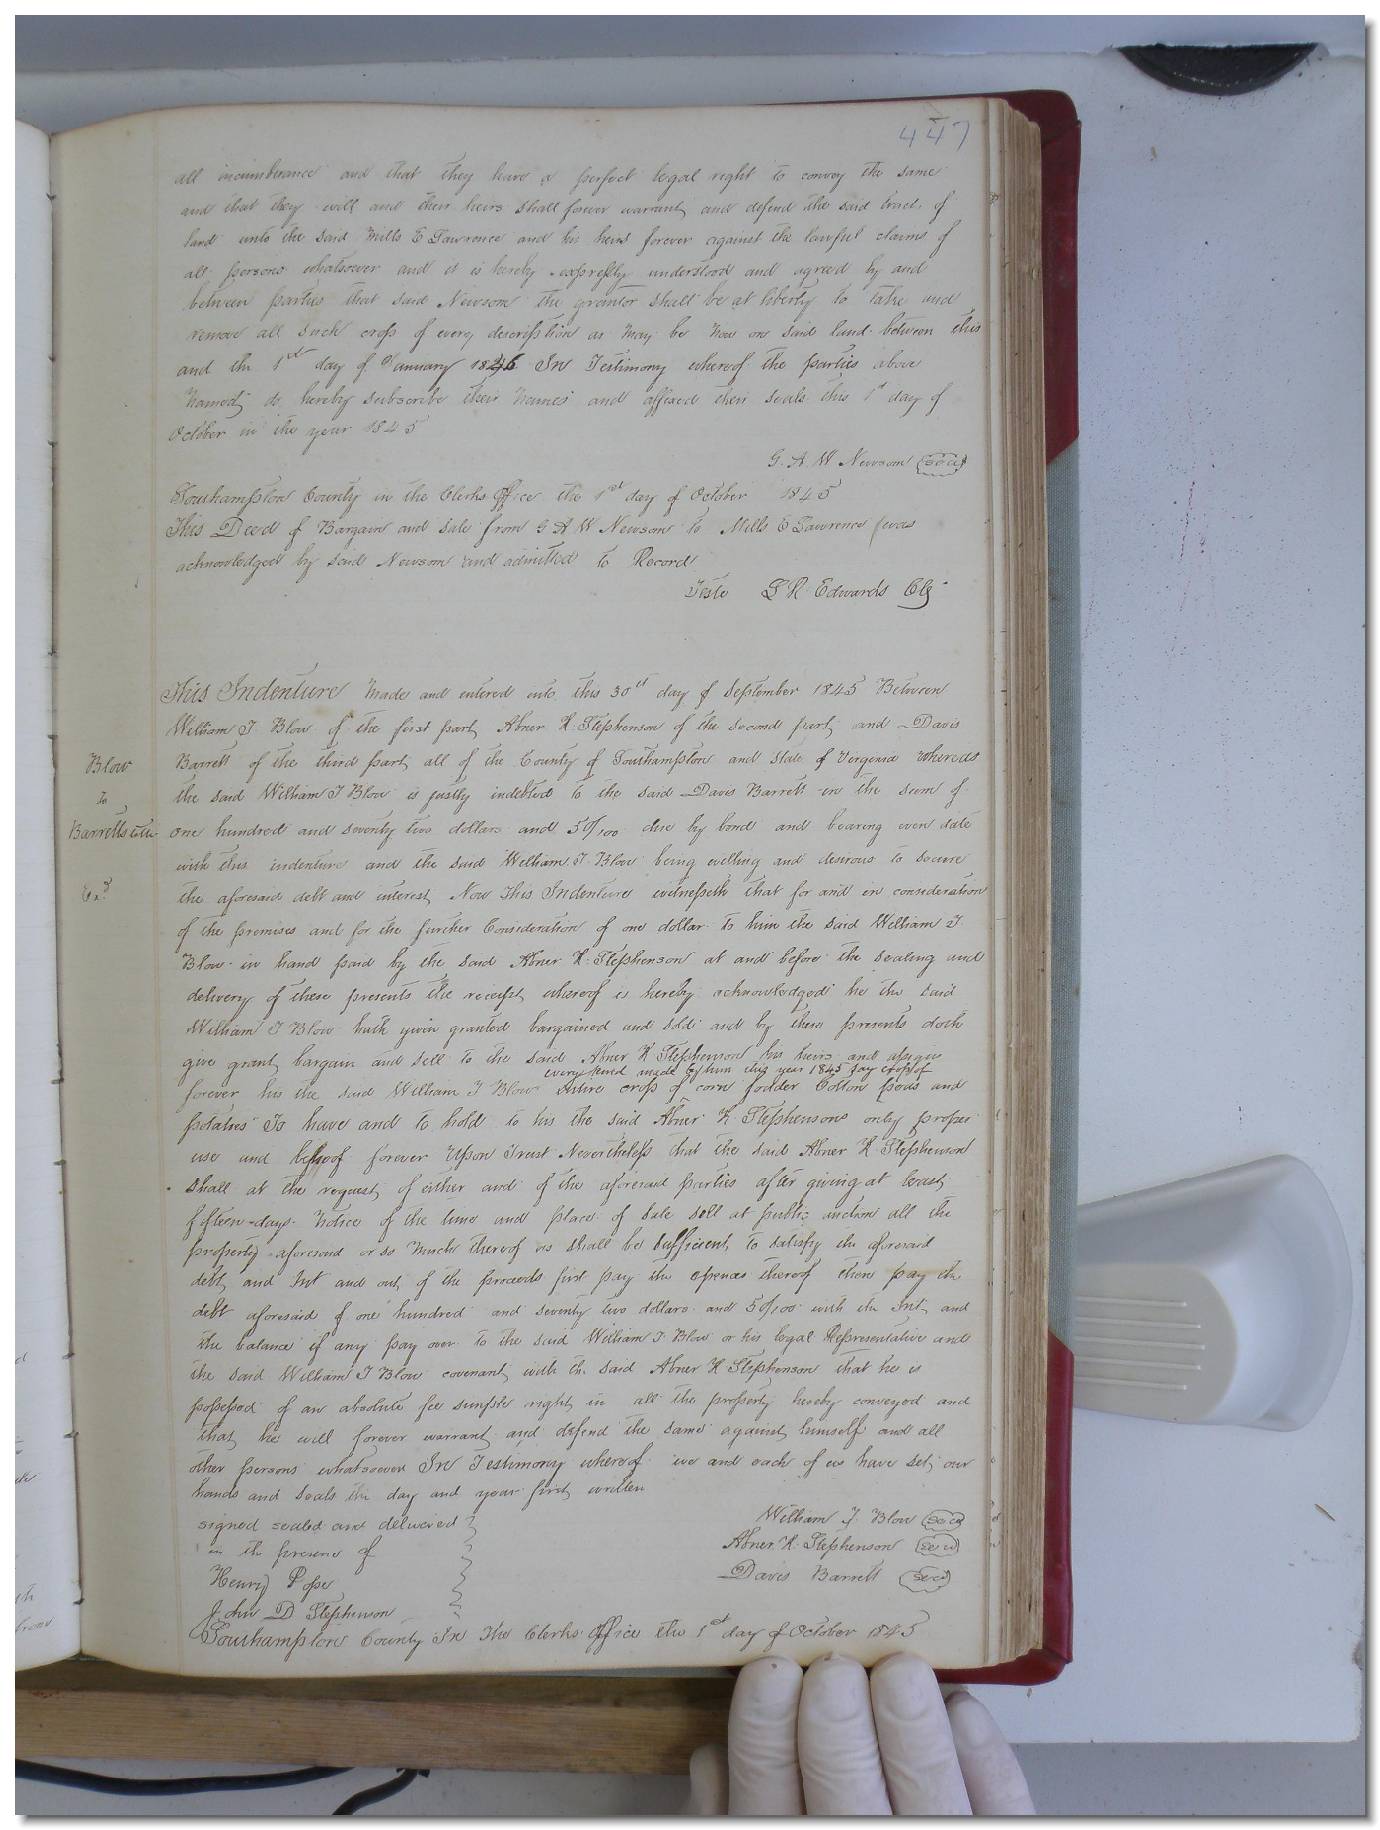 447
all incumberance and that they have a perfect legal right to convey the same
and that they will and their heirs shall forever warrant and defend the said tract of
land unto the said Mills E Lawrence and his heirs forever against the lawful claims of
all persons whatsoever and it is hereby expressly understood and agreed by and
between parties that said Newsom the grantor shall be at liberty to take and
remove all such crops of every description as may be now on said land between this
and the 1st day of January 1846 In Testimony whereof the parties above
Named do hereby subscribe their Names and affixed their seals this 1st day of
October in the year 1845
G. A. W Newsom seal
Southampton County in the Clerks Office the 1st day of October 1845
This Deed of Bargain and Sale from G A W Newsom to Mills E Lawrence was
acknowledged by said Newsom and admitted to Record
Teste L R Edwards Clk
This Indenture Made and entered into this 30th day of September 1845 Between
William T Blow of the first part Abner K Stephenson of the second part and Davis
Blow
to
Barretts
Exd
Barrett of the third part all of the County of Southampton and State of Virginia Whereas
the said William T Blow is justly indebted to the said Davis Barrett in the sum of
one hundred and seventy two dollars and 50/100 due by bond and bearing even date
with this indenture and the said William T Blow being willing and desirous to secure
the aforesaid debt and interest Now This Indenture witnesseth that for and in consideration
of the premises and for the further Consideration of one dollar to him the said William T.
Blow in hand paid by the said Abner K. Stephenson at and before the sealing and
delivery of these presents the receipt whereof is hereby acknowledged he the said
William T Blow hath given granted bargained and sold and by these presents doth
give grant bargain and sell to the said Abner K Stephenson his heirs and assigns
every kind made by him this year 1845 say crop of
forever his the said William T Blow entire crop of corn fodder Cotton peas and
potatoes To have and to hold to his the said Abner K. Stephensons only proper
use and behoof forever Upon Trust Nevertheless that the said Abner K Stephenson
shall at the request of either and of the aforesaid parties after giving at least
fifteen days Notice of the time and place of Sale sell at public auction all the
property aforesaid or so Much thereof as shall be Sufficient to satisfy the aforesaid
debt and Int and out of the proceeds first pay the expences thereof then pay the
debt aforesaid of one hundred and seventy two dollars and 50/100 with the Int and
the balance if any pay over to the said William T. Blow or his legal Representative and
the said William T Blow covenant with the said Abner K Stephenson that he is
possessed of an absolute fee simple right in all the property hereby conveyed and
that he will forever warrant and defend the same against himself and all
other persons whatsoever In Testimony whereof we and each of us have set our
hands and Seals the day and year first written
signed sealed and delivered
in the presence of
Henry Pope
John D Stephenson
William T. Blow seal
Abner K. Stephenson seal
Davis Barrett seal
Southampton County In The Clerks Office the 1st day of October 1845